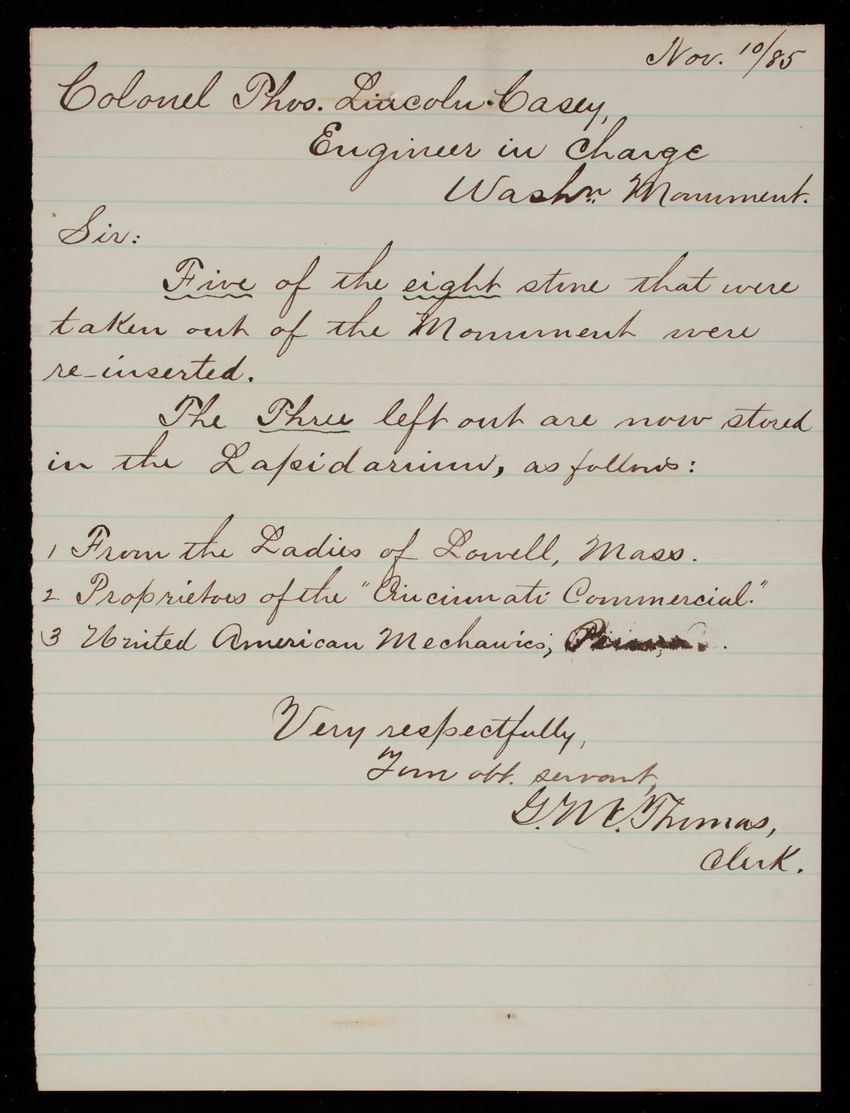 Nov. 10/85
Colonel Thos. Lincoln Casey,
Engineer in Charge
Washn. Monument.
Sir:
Five of the eight stone that were
taken out of the Monument were
re-inserted.
The Three left out are now stored
in the Lapidarium, as follows:
1 From the Ladies of Lowell, Mass.
2 Proprietors of the "Cincinnati Commercial."
3 United American Mechanics,
Very respectfully,
Your obt. servant,
G. M. Thomas,
Clerk.